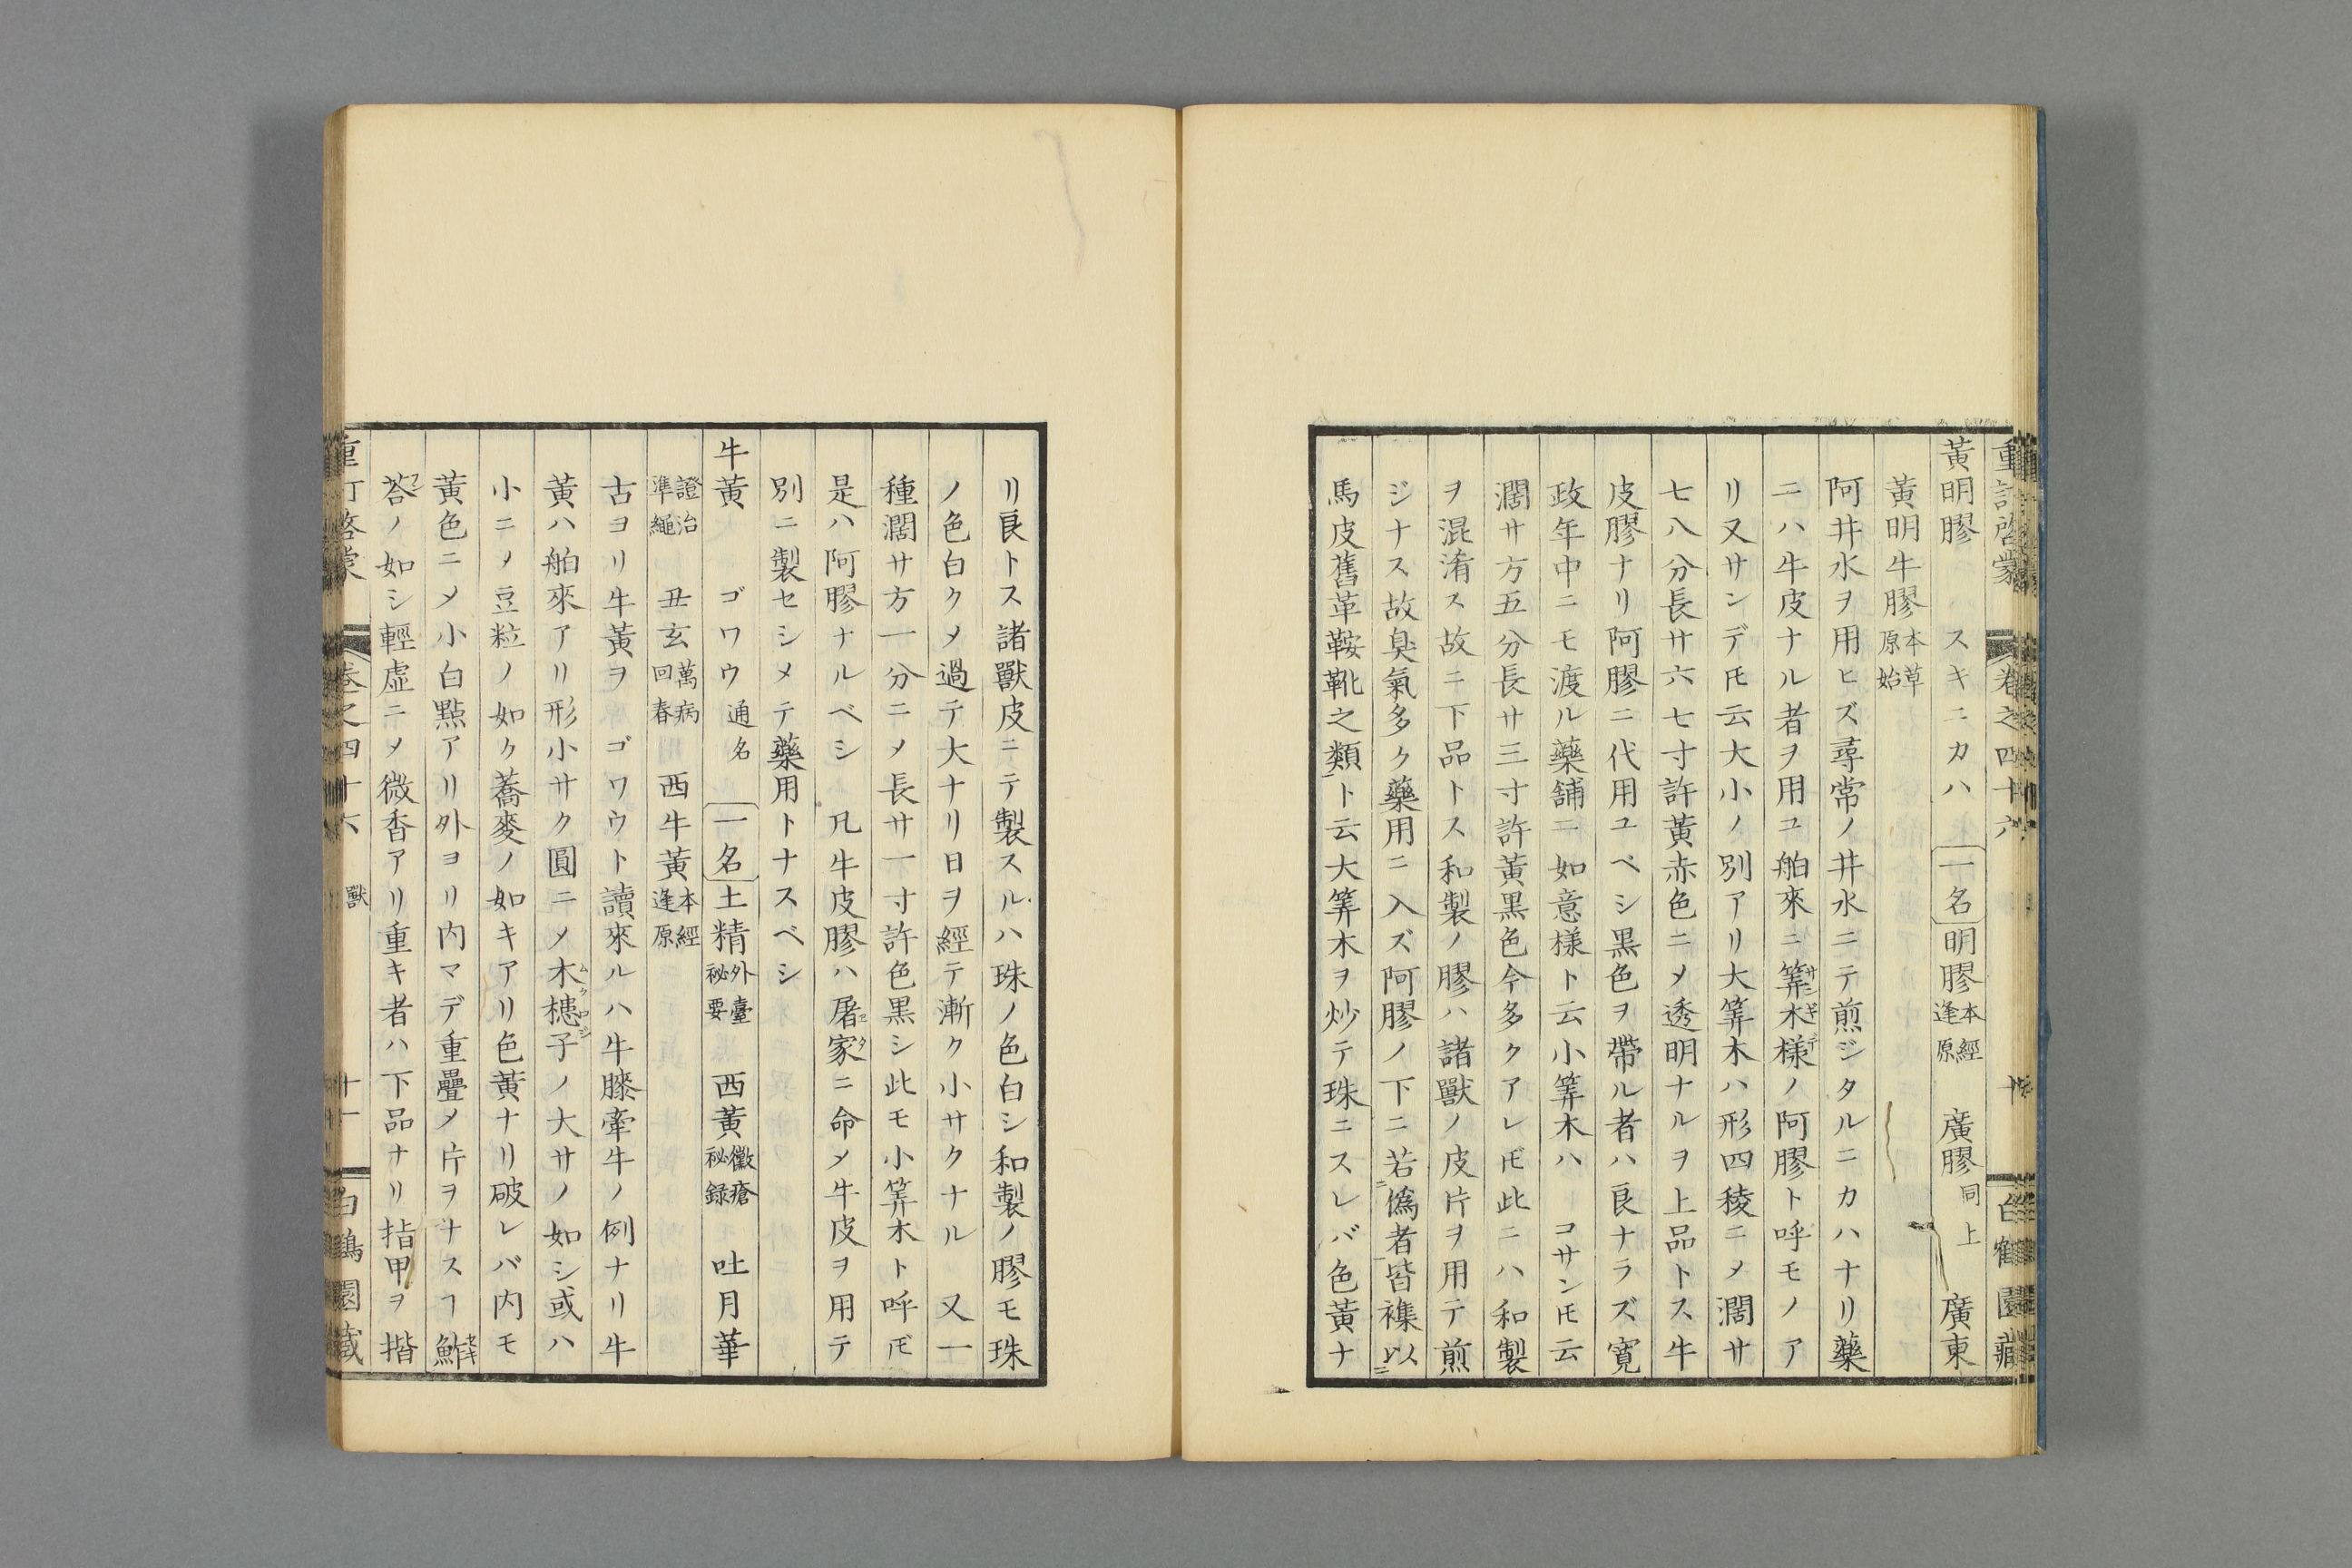 黃明膠 スキニカハ 一名 明膠本經逢原 廣膠同上 廣東
黃明牛膠本草原始
阿井水ヲ用ヒズ尋常ノ井水ニテ煎ジタルニカハナリ藥
ニハ牛皮ナル者ヲ用ユ舶來ニ筭木樣サンギデノ阿膠ト呼モノア
リ又サンデ𪜈云大小ノ別アリ大筭木ハ形四稜ニメ濶サ
七八分長サ六七寸許黃赤色ニメ透明ナルヲ上品トス牛
皮膠ナリ阿膠ニ代用ユベシ黑色ヲ帶ル者ハ良ナラズ寬
政年中ニモ渡ル藥舖ニ如意樣ト云小筭木ハ コサン𪜈云
濶サ方五分長サ三寸許黃黑色今多クアレ𪜈此ニハ和製
ヲ混淆ス故ニ下品トス和製ノ膠ハ諸獸ノ皮片ヲ用テ煎
ジナス故臭氣多ク藥用ニ入ズ阿膠ノ下ニ若僞者皆襍以
馬皮舊革鞍靴之類ト云大筭木ヲ炒テ珠ニスレバ色黃ナ
リ良トス諸獸皮ニテ製スルハ珠ノ色白シ和製ノ膠モ珠
ノ色白クメ過テ大ナリ日ヲ經テ漸ク小サクナル 又一
種濶サ方一分ニメ長サ一寸許色黑シ此モ小筭木ト呼𪜈
是ハ阿膠ナルベシ 凡牛皮膠ハ屠家エタニ命メ牛皮ヲ用テ
別ニ製セシメテ藥用トナスベシ
牛黃 ゴワウ通名 一名 土精外臺祕要 西黃黴瘡祕錄 吐月華
證治準繩 丑玄萬病回春 西牛黃本經逢原
古ヨリ牛黃ヲ ゴワウト讀來ルハ牛膝牽牛ノ例ナリ牛
黃ハ舶來アリ形小サク圓ニメ木槵子ムクロジノ大サノ如シ或ハ
小ニメ豆粒ノ如ク蕎麥ノ如キアリ色黃ナリ破レバ内モ
黃色ニメ小白點アリ外ヨリ内マデ重疊メ片ヲナスヿ鮓
荅ノ如シ輕虛ニメ微香アリ重キ者ハ下品ナリ指甲ヲ揩
重訂啓蒙 卷之四十六 獸 十一 白鶴園藏